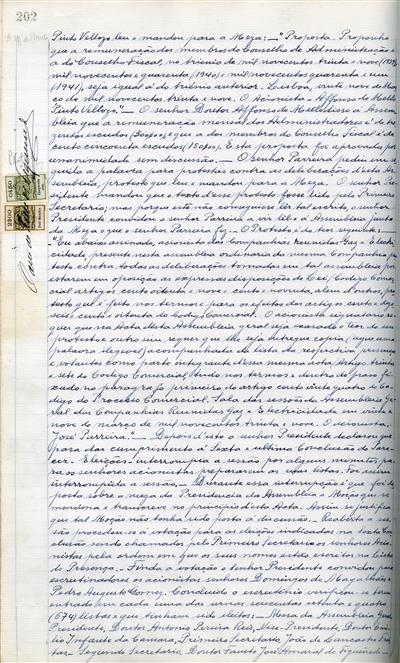 202
Pinto Velloso leu e mandou para a Meza: — "Proposta. Proponho
que a remuneração dos membros do Conselho de Administração e
do Conselho Fiscal, no triénio de mil novecentos trinta e nove (1939),
mil novecentos e quarenta (1940) e mil novecentos quarenta e um
(1941), seja igual á do triénio anterior. Lisboa, vinte nove de Mar-
ço de mil novecentos trinta e nove. O Accionista Affonso de Mello
Pinto Velloso." — O senhor Doutor Affonso de Mello disse á Assem-
bleia que a remuneração mensal dos Administradores é de tre-
zentos escudos (300$00), e que a dos membros do Conselho Fiscal é de
cento cincoenta escudos (150$00). Esta proposta foi aprovada por
unanimidade sem discussão. — O senhor Parreira pediu em se-
guida a palavra para protestar contra as deliberações d'esta As-
sembleia, protesto que leu e mandou para a Meza. O senhor Pre-
sidente mandou que o texto d'esse protesto fosse lido pelo Primeiro
Secretario, mas porque este não conseguisse ler tal escrito, o senhor
Presidente convidou o senhor Parreira a vir lêl-o á Assembleia junto
da Meza o que o senhor Parreira fez. — O Protesto é do teor seguinte:
"Eu abaixo assinado, accionista das Companhias Reunidas Gaz e Electri-
cidade, presente nesta assembleia ordinaria da mesma Companhia, pro-
testo contra todas as deliberações tomadas em tal assembleia por
estarem em oposição ás expressas disposições da Lei, Codigo Comer-
cial artigos cento oitenta e nove e cento e noventa, alem d'outros, pro-
testo que é feito nos termos e para os efeitos dos artigos cento e deze-
seis e cento e oitenta do Codigo Comercial. O accionista signatario re-
quer que na Acta desta Assembleia geral seja exarado o teor do seu
protesto e outro sim, requer que lhe seja entregue copia (aqui uma
palavra ilegivel) acompanhada da lista da
e votantes como parte integrante dessa mesma acta, artigo trinta
e sete do Codigo Comercial, tudo nos termos e dentro do praso fi-
xado no paragrafo primeiro do artigo cento vinte quatro do Co-
digo do Processo Comercial. Sala das sessões da Assembleia Ge-
ral das Companhias Reunidas Gaz e Electricidade em vinte e
nove de março de mil novecentos trinta e nove. O accionista,
José Parreira." — Depois d'isto o senhor Presidente declarou que
para dar cumprimento á Sexta e ultima Conclusão do Pare-
cer — Eleições — interrompia a sessão por alguns minutos, pa-
ra os senhores accionistas prepararem as suas listas. Foi assim
interrompida a sessão. — Durante essa interrupção é que foi de-
posta sobre a meza da Presidencia da Assembleia a Moção que se
menciona e transcreve no principio d'esta Acta. Assim se justifica
que tal Moção não tenha sido posta á discussão. — Reaberta a ses-
são procedeu-se á votação para as eleições indicadas na Sexta Con-
clusão sendo chamados pelo Primeiro Secretario os senhores Acio-
nistas pela ordem em que os seus nomes estão escritos na Lista
de Presença. — Finda a votação o senhor Presidente convidou para
escrutinadores os acionistas senhores Domingos de Magalhães e
Pedro Augusto Gomes. Concluido o escrutinio verificou-se terem
entrado em cada uma das urnas seiscentas setenta e quatro
(674) listas e que tinham sido eleitos: — Meza da Assembleia Geral:
Presidente, Doutor Antonio Pereira Reis, Vice-Presidente, Doutor Eme-
lio Infante da Camara, Primeiro Secretario, João de Lancastre Frei-
tas, Segundo Secretario, Doutor Fausto José Amaral de Figueiredo